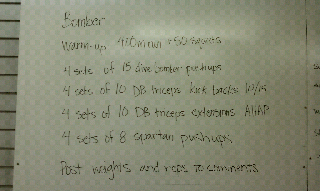 Bomber
Warm-up 400m run + 50 squats
4 sets of 15 dive bomber pushups
4 sets of 10 DB triceps kick backs
4 sets of 10 DB triceps extensions AHAP
4 sets of 8 spartan pushups
Post weights and reps to comments.